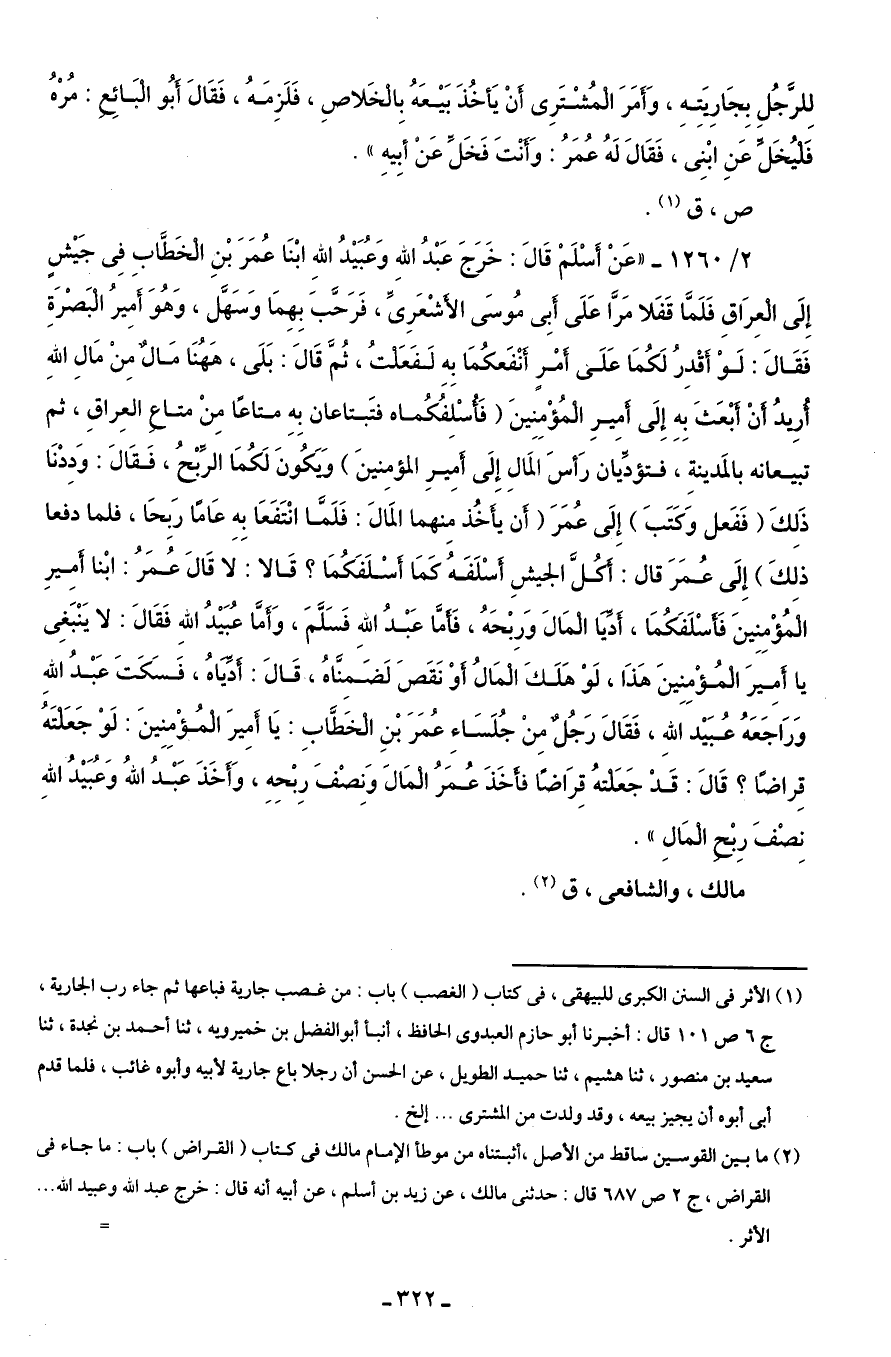 لِلرَّجُلِ بِجَارِيَتِهِ ، وَأَمَرَ الْمُشْتَرِى أَنْ يَأْخُذَ بَيْعَهُ بِالْخَلَاصِ ، فَلَزِمَهُ ، فَقَالَ أَبُو الْبَائِعِ : مُرْهُ
فَلْيُخَلِّ عَنِ ابْنِى ، فَقَالَ لَهُ عُمَرُ : وَأَنْتَ فَخَلِّ عَنْ أَبِيهِ » .
ص ، ق (١) .
٢/ ١٢٦٠ ـ « عَنْ أَسْلَمَ قَالَ : خَرَجَ عَبْدُ الله وَعُبَيْدُ الله ابْنَا عُمَرَ بْنِ الْخَطَّابِ فِى جَيْشٍ
إِلَى الْعِرَاقِ فَلَمَّا قَفَلا مَرَّا عَلَى أَبِى مُوسَى الأَشْعَرِىِّ ، فَرَحَّبَ بِهِمَا وَسَهَّلَ ، وَهُوَ أَمِيرُ الْبَصْرَةِ
فَقَالَ : لَوْ أَقْدِرُ لَكُمَا عَلَى أَمْرٍ أَنْفَعُكُمَا بِهِ لَفَعَلْتُ ، ثُمَّ قَالَ : بَلَى ، هَهُنَا مَالٌ مِنْ مَالِ الله
أُرِيدُ أَنْ أَبْعَثَ بِهِ إِلَى أَمِيرِ الْمُؤْمِنِينَ ( فَأُسْلِفُكُمَاه فَتَبتاعان به متاعًا مِنْ متاعِ العراق ، ثم
تبيعانه بالمَدينة ، فتؤدِّيان رأسَ المال إلى أمير المؤمنينَ ) وَيَكُونَ لَكُمَا الرِّبْحُ ، فَقَالَ : وَدِدْنَا
ذَلِكَ ( فَفَعل وكَتَبَ ) إِلَى عُمَرَ ( أن يأخُذ منهما المَالَ : فَلَمَّا انْتَفَعَا بِهِ عَامًا رَبِحَا ، فلما دفعا
ذلكَ ) إِلَى عُمَرَ قال : أَكُلَّ الجيشِ أَسْلَفَهُ كَمَا أَسْلَفَكُمَا ؟ قَالا : لا قَالَ عُمَرُ : ابْنا أَمِيرِ
الْمُؤْمِنِينَ فَأَسْلَفَكُمَا ، أَدِّيَا الْمَالَ وَرِبْحَهُ ، فَأَمَّا عَبْدُ الله فَسَلَّمَ ، وَأَمَّا عُبَيْدُ الله فَقَالَ : لا يَنْبَغِى
يا أَمِيرَ الْمُؤْمِنِينَ هَذَا ، لَوْ هَلَكَ الْمَالُ أَوْ نَقَصَ لَضَمِنَّاهُ ، قَالَ : أَدِّيَاهُ ، فَسَكَتَ عَبْدُ الله
وَرَاجَعَهُ عُبَيْد الله ، فَقَالَ رَجُلٌ مِنْ جُلَسَاء عُمَرَ بْنِ الْخَطَّابِ : يَا أَمِيرَ الْمُؤْمِنِينَ : لَوْ جَعَلْتَهُ
قِراضًا ؟ قَالَ : قَدْ جَعَلْتهُ قِرَاضًا فأَخَذَ عُمَرُ الْمَالَ وَنِصْفَ رِبْحِهِ ، وَأَخَذَ عَبْدُ اللهُ وَعُبَيْدُ الله
نِصْفَ رِبْحِ الْمَالِ » .
مالك ، والشافعى ، ق (٢) .
(١) الأثر فى السنن الكبرى للبيهقى ، فى كتاب ( الغصب ) باب : من غصب جارية فباعها ثم جاء رب الجارية ،
ج ٦ ص ١٠١ قال : أخبرنا أبو حازم العبدوى الحافظ ، أنبأ أبوالفضل بن خميرويه ، ثنا أحمد بن نجدة ، ثنا
سعيد بن منصور ، ثنا هشيم ، ثنا حميد الطويل ، عن الحسن أن رجلا باع جارية لأبيه وأبوه غائب ، فلما قدم
أبى أبوه أن يجيز بيعه ، وقد ولدت من المشترى ... إلخ .
(٢) ما بين القوسين ساقط من الأصل ،أثبتناه من موطأ الإمام مالك فى كتاب ( القراض ) باب : ما جاء فى
القراض ، ج ٢ ص ٦٨٧ قال : حدثنى مالك ، عن زيد بن أسلم ، عن أبيه أنه قال : خرج عبد الله وعبيد الله...
الأثر .
=
ـ ٣٢٢ ـ